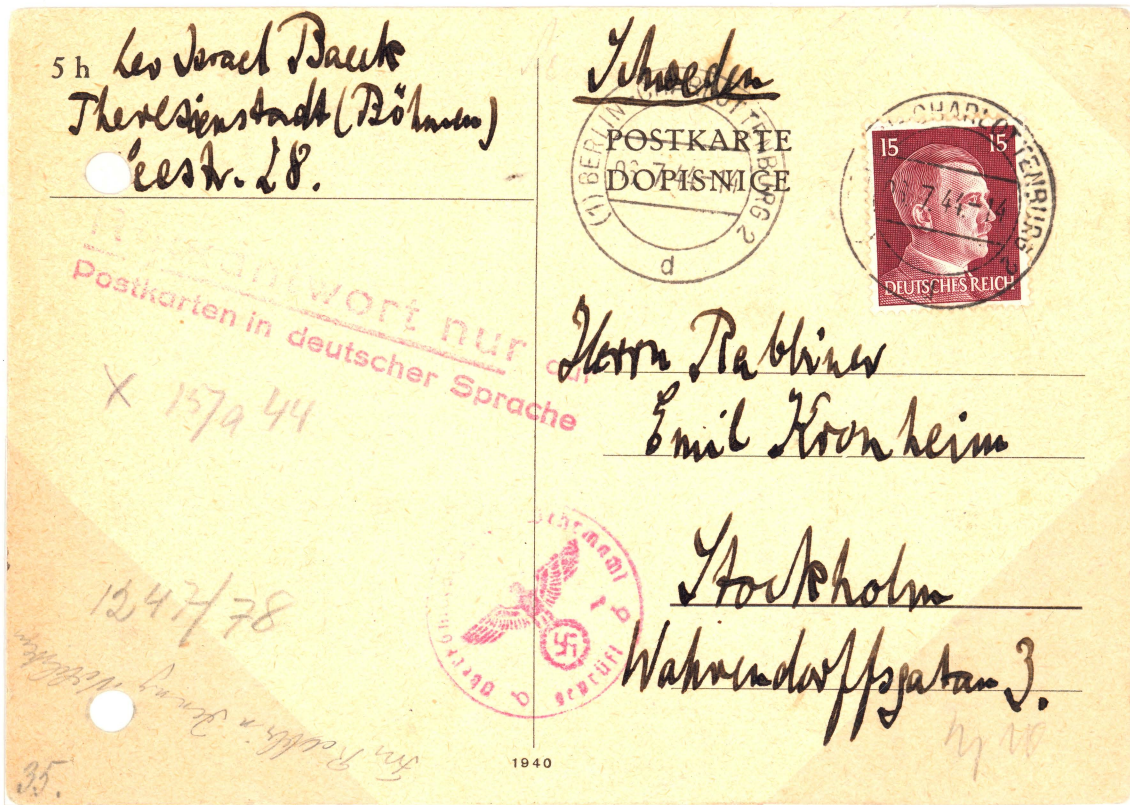 5 h Leo Israel Baeck
Theresienstadt (Böhmen)
Seestr. 28.
Rückantwort nur auf
Postkarten in deutscher Sprache
X 15/9 44
1247/78
35.
Schweden
POSTKARTE
DOPISNICE
(1) BERLIN-CHARLOTTENBURG 2
7.44.-14
d
15 15
DEUTSCHES REICH
CHARLOTTENBURG 2
7.44.-14
Herrn Rabbiner
Emil Kronheim
Stockholm
Wahrendorffsgatan 3.
Oberkommando der Wehrmacht
geprüft
1940